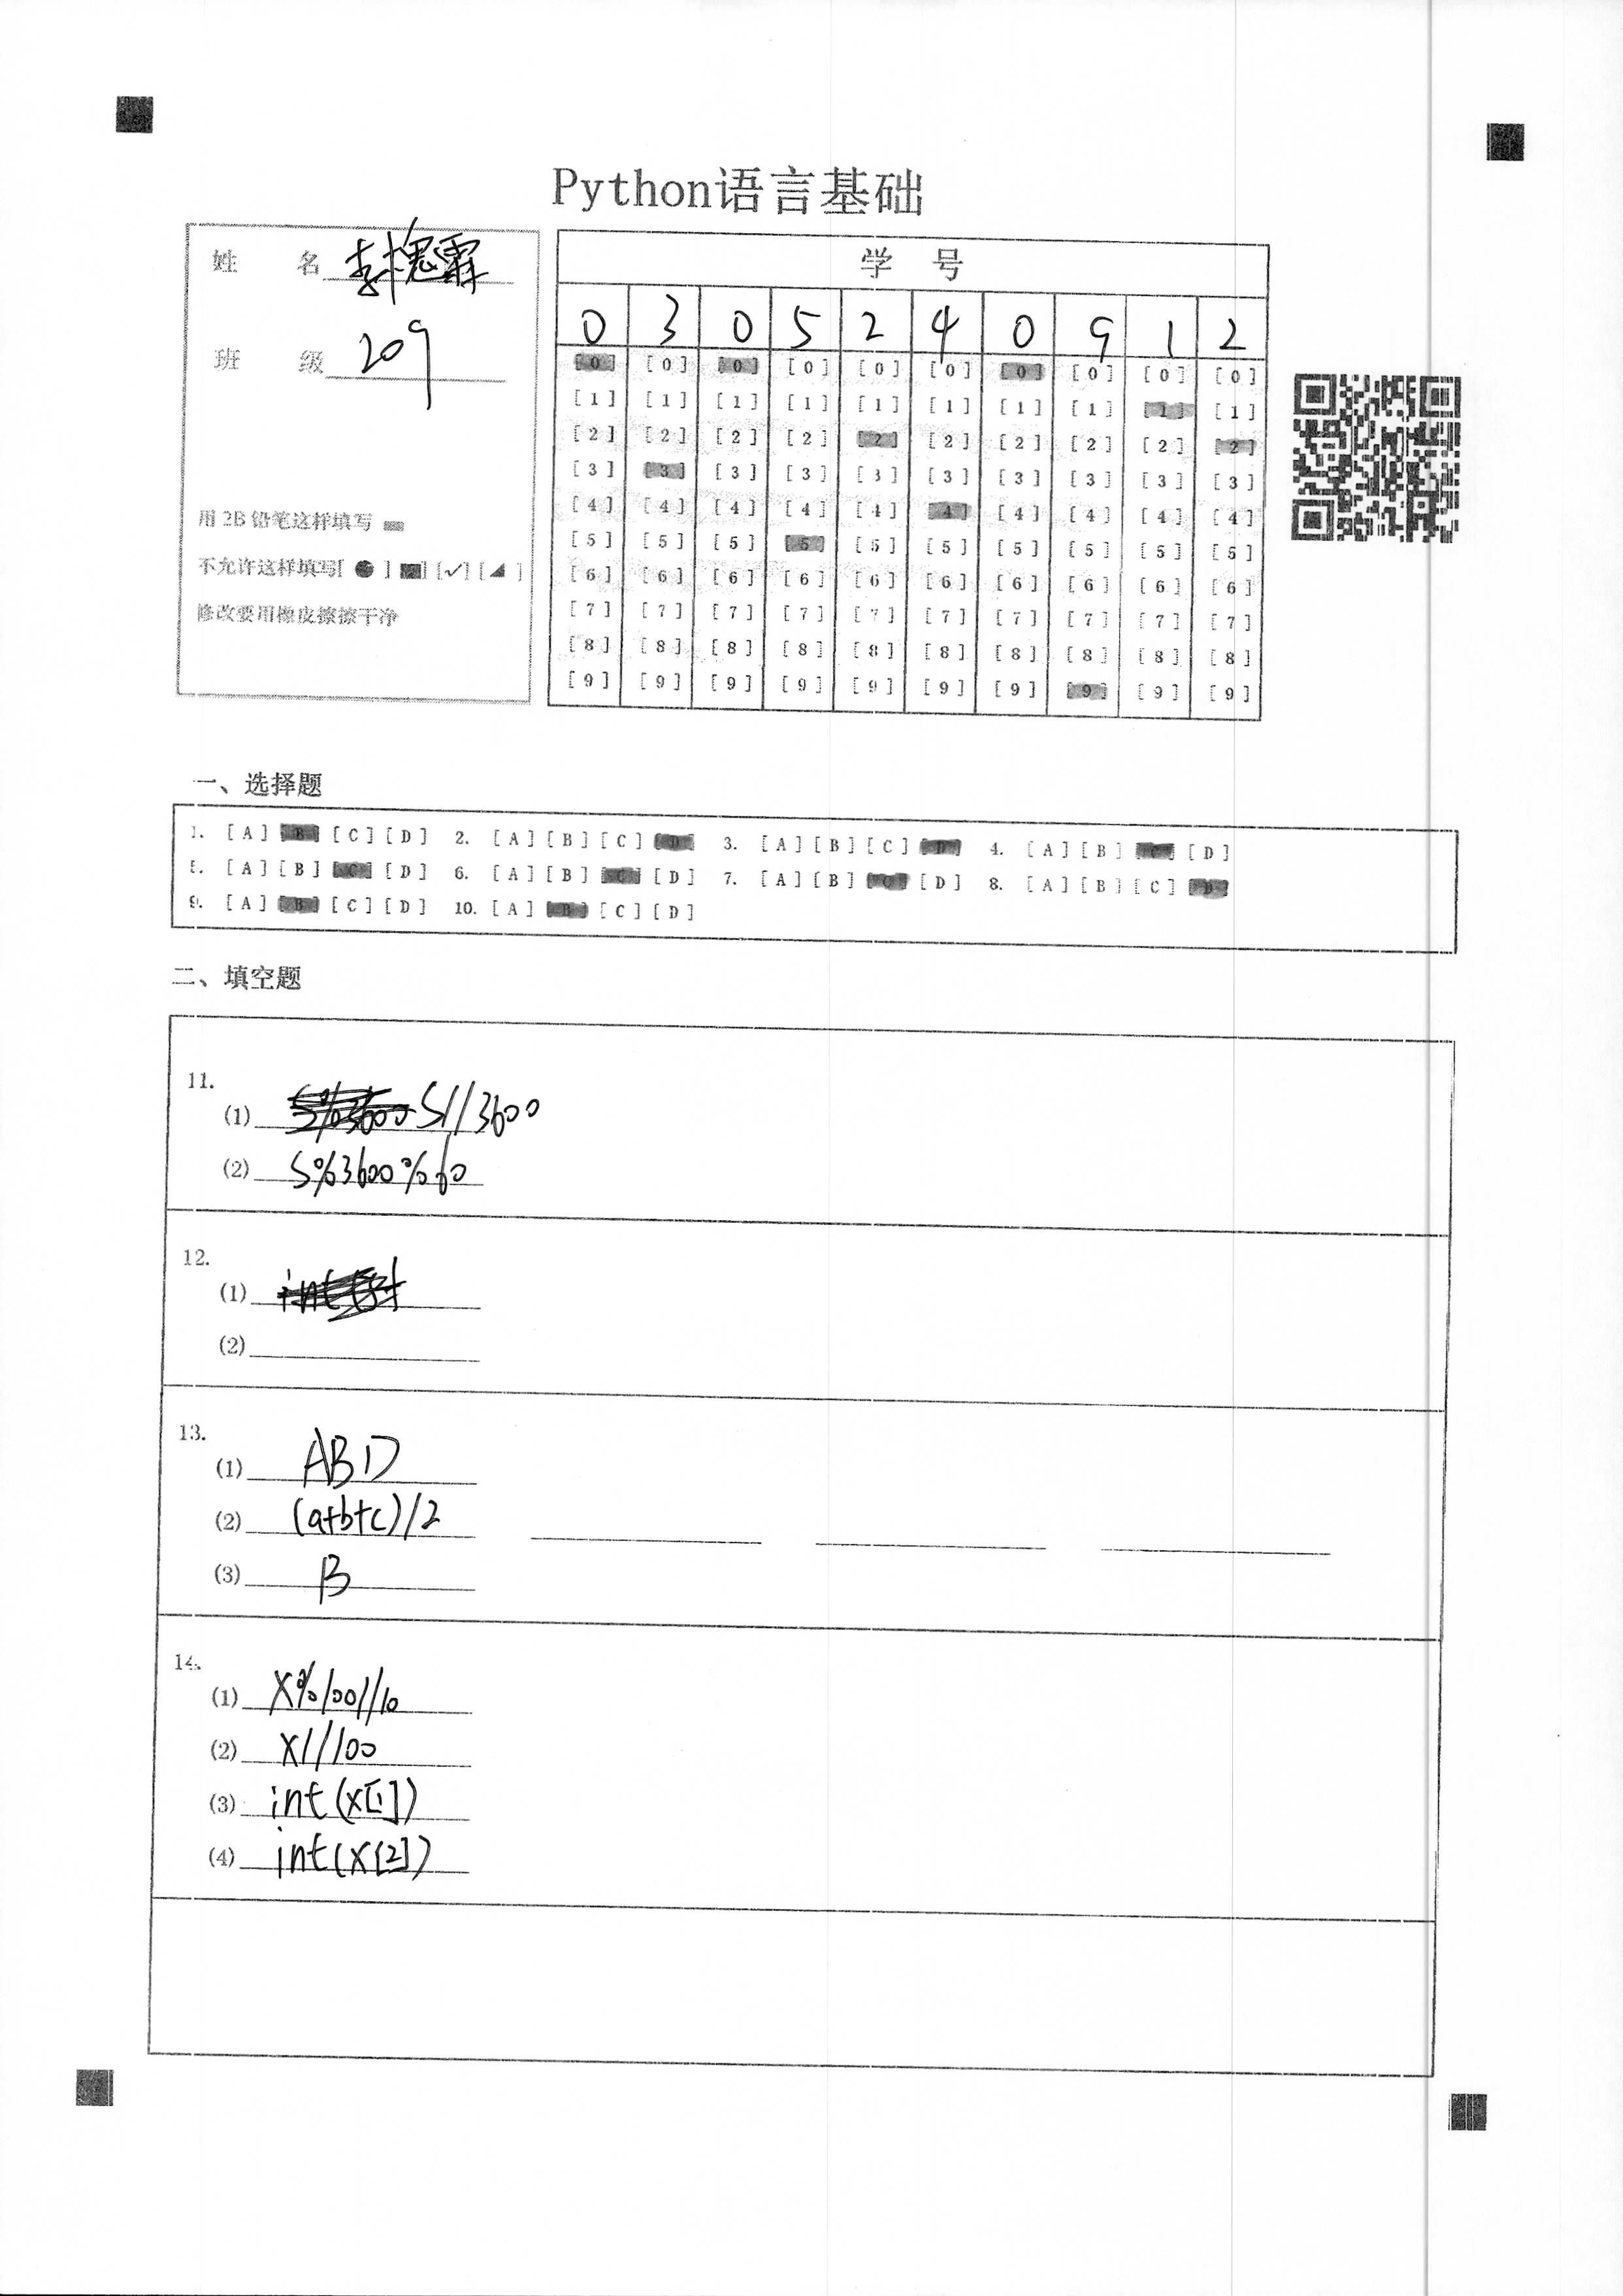 Python语言基础
姓 名 李槐霖
班 级 209
用 2B 铅笔这样填写
不允许这样填写[ ● ] [■] [✓] [◢ ]
修改要用橡皮擦擦干净
学 号
0 3 0 5 2 4 0 9 1 2
[0] [0] [0] [0] [0] [0] [0] [0] [0] [0]
[1] [1] [1] [1] [1] [1] [1] [1] [1] [1]
[2] [2] [2] [2] [2] [2] [2] [2] [2] [2]
[3] [3] [3] [3] [3] [3] [3] [3] [3] [3]
[4] [4] [4] [4] [4] [4] [4] [4] [4] [4]
[5] [5] [5] [5] [5] [5] [5] [5] [5] [5]
[6] [6] [6] [6] [6] [6] [6] [6] [6] [6]
[7] [7] [7] [7] [7] [7] [7] [7] [7] [7]
[8] [8] [8] [8] [8] [8] [8] [8] [8] [8]
[9] [9] [9] [9] [9] [9] [9] [9] [9] [9]
一、选择题
1. [A] [B] [C] [D] 2. [A] [B] [C] [D] 3. [A] [B] [C] [D] 4. [A] [B] [C] [D]
5. [A] [B] [C] [D] 6. [A] [B] [C] [D] 7. [A] [B] [C] [D] 8. [A] [B] [C] [D]
9. [A] [B] [C] [D] 10. [A] [B] [C] [D]
二、填空题
11.
(1) S%3600 S//3600
(2) S%3600%60
12.
(1)
(2)
13.
(1) ABD
(2) (a+b+c)/2
(3) B
14.
(1) X%100//10
(2) X//100
(3) int(X[1])
(4) int(X[2])